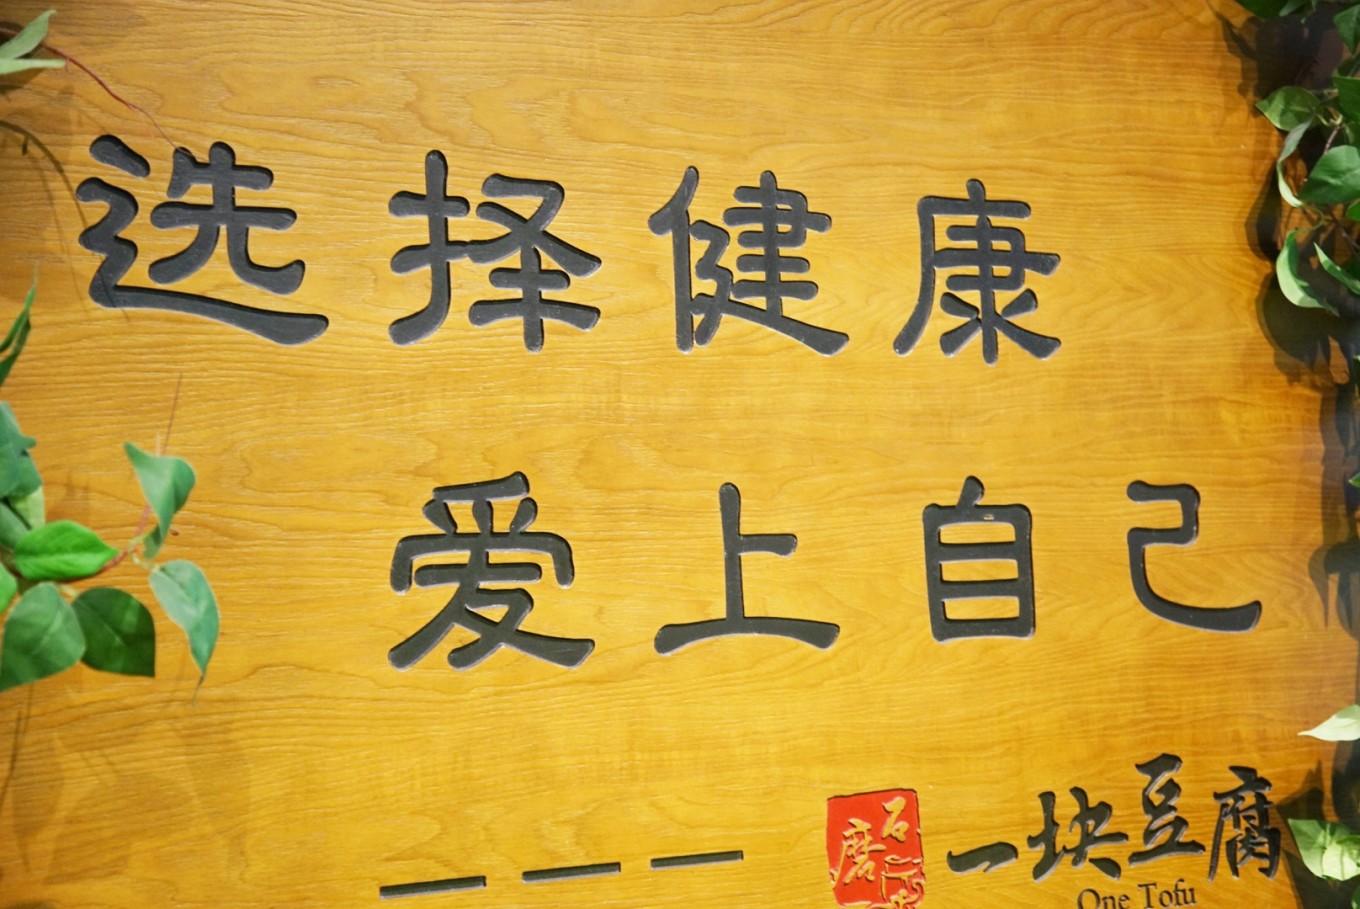 选择健康
爱上自己
———
石磨
一块豆腐
One Tofu